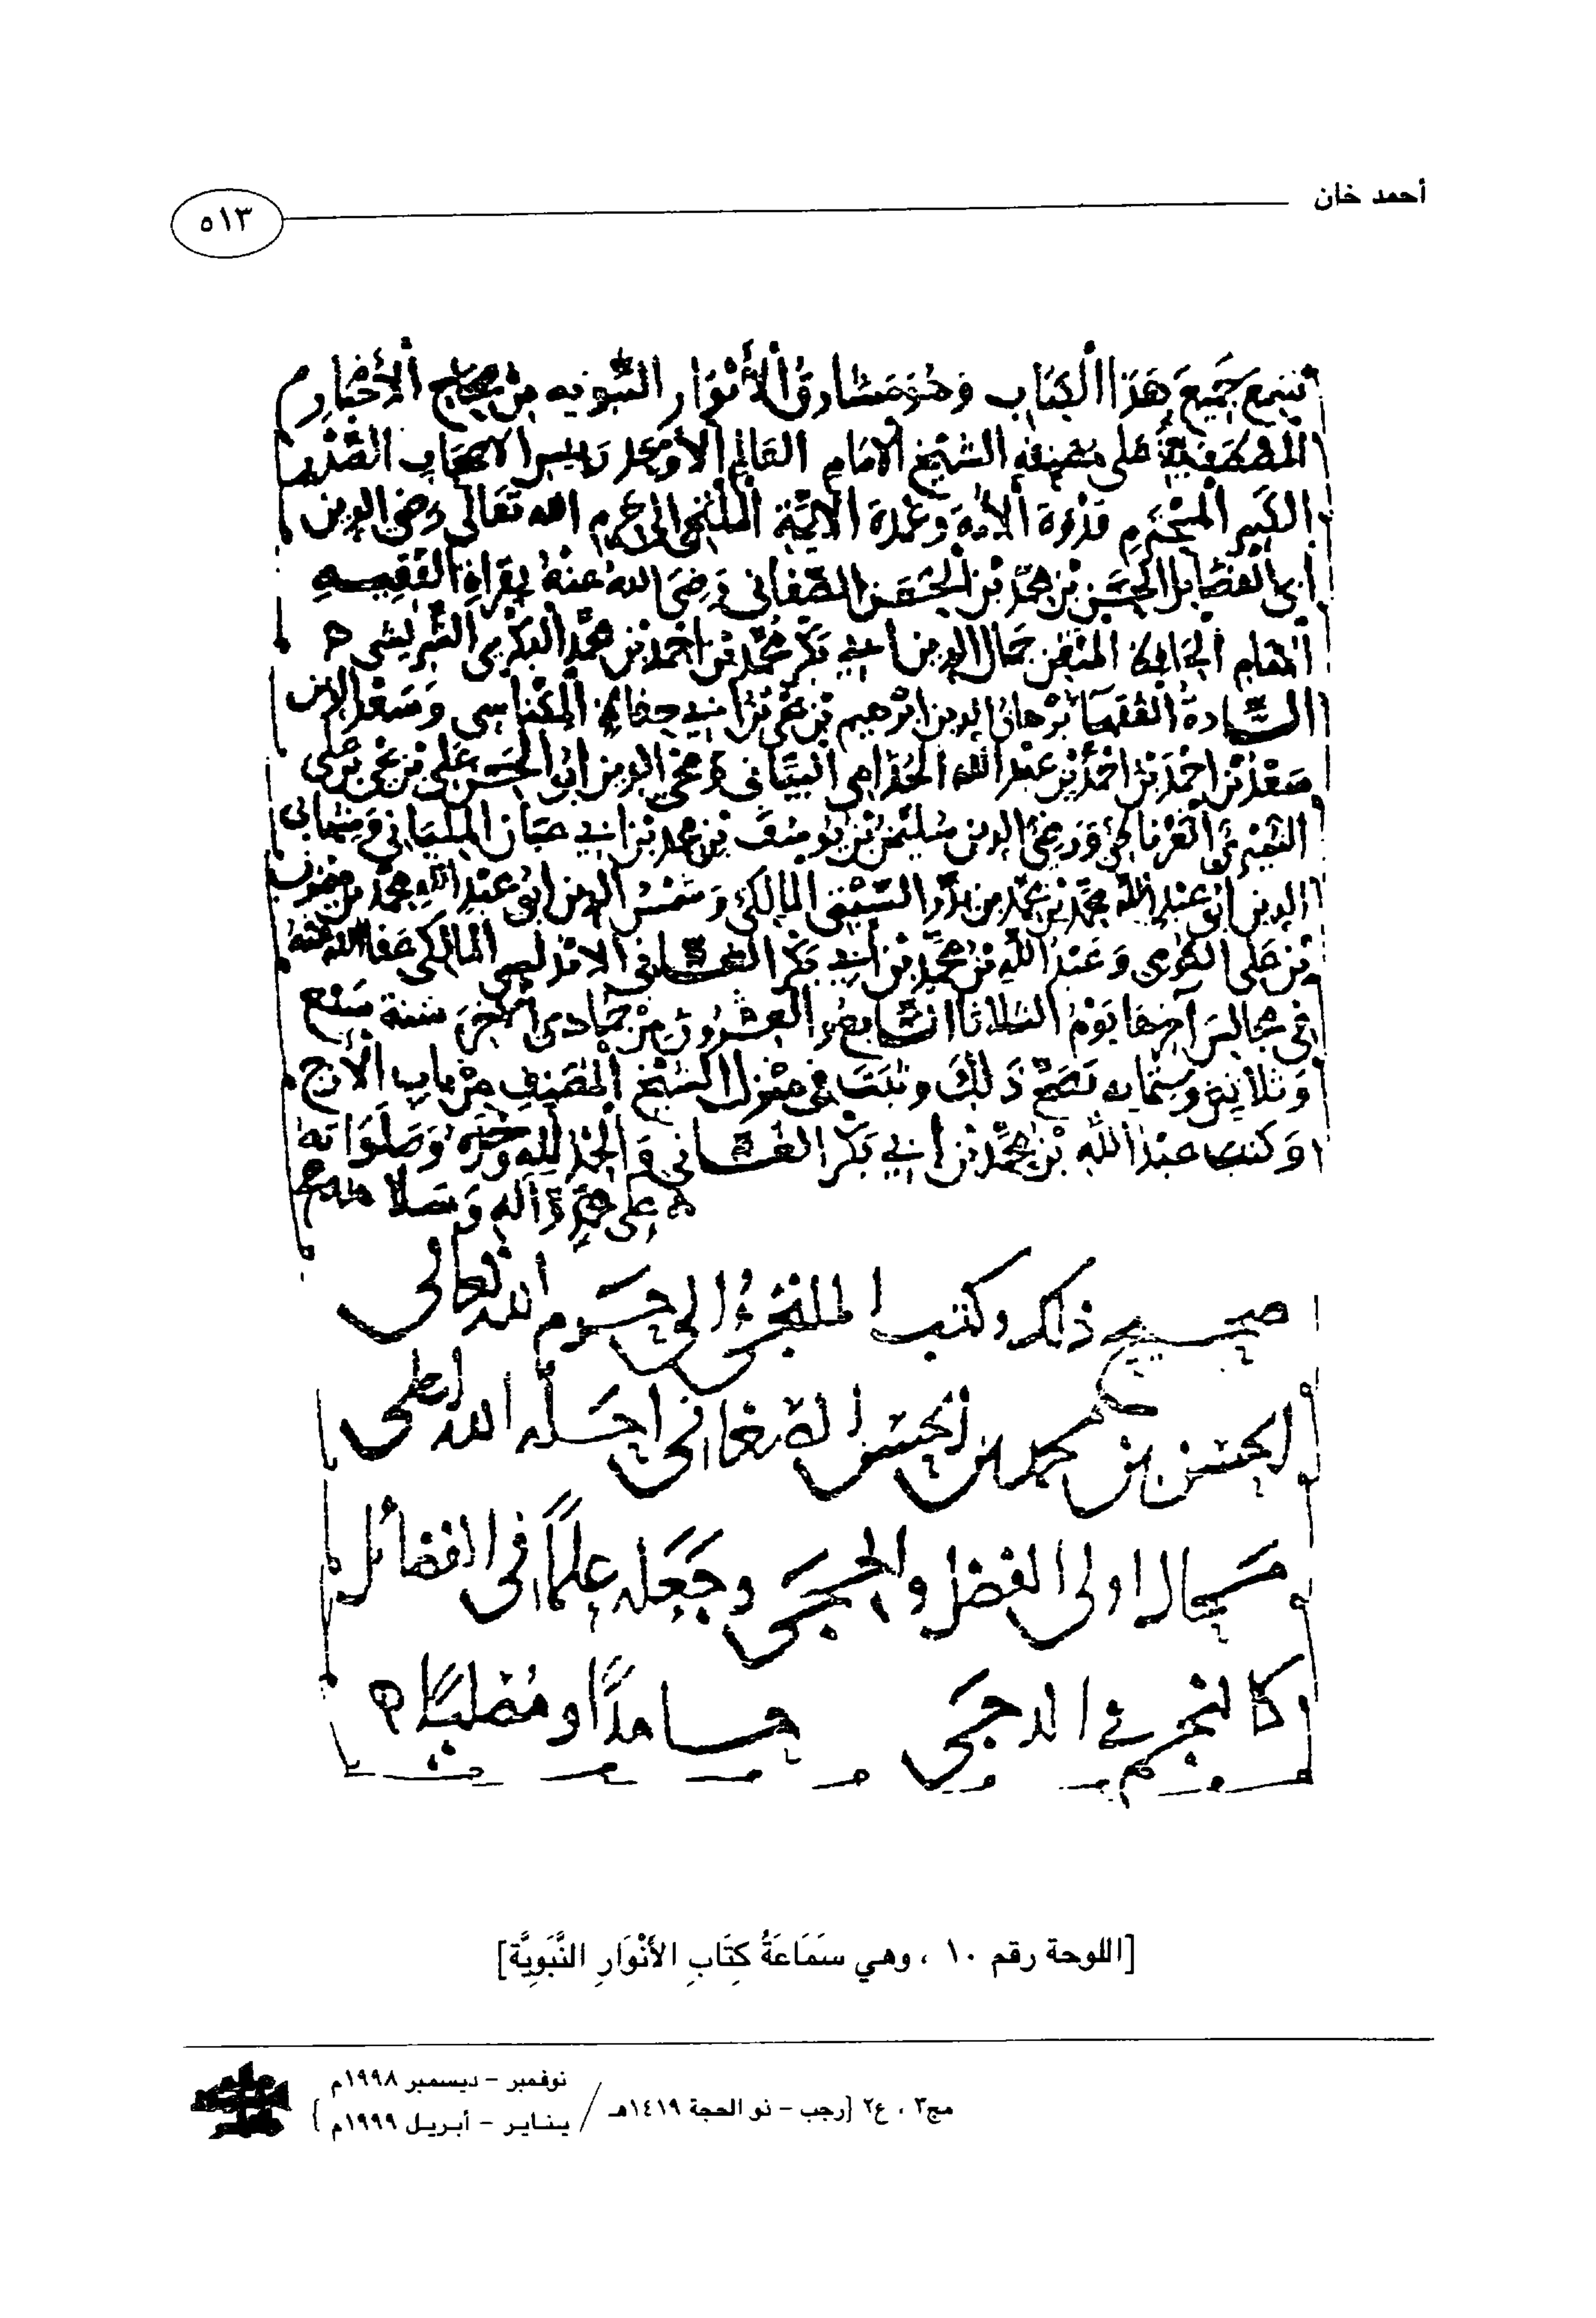 أحمد خان
٥١٣
سمع جَمِيعَ هَذَا الكِتَاب وَهُوَ مَشَارِقُ الأَنْوَار النبويه مِنْ صِحَاحِ الأَخْبَارِ
المُصْطَفَوِيَّةِ عَلى مصنفه الشَّيْخ الإمَامِ العَالِم الأوحد رَئيس الاصحاب الصَّدْر
الكَبير المُحْتَرَمِ قُدْوَة وَعُمْدَة الائمَّة المُلْتَجِئ الى حرم الله تعَالى رضى الدين
ابى الفضَائل الحَسَن بْن مُحَمَّد بْن الحَسَن الصَّغَانى رَضِىَ اللهُ عَنْهُ بِقِرَاةِ الفَقِيهِ
جَمَال الدين أبي بَكْر مُحَمَّد بْن احْمَد بْن مُحَمَّد البَكْرى الشَّرِيشى
السَّادة الفُقَهَا بُرْهَانُ الدين ابْرهِيم بْن يَحْيى بْن أبي حفاظ المِكْنَاسى وَسَعْد الدين
سَعْدُ بْن احْمَدَ بْن احْمَد بْن عَبْد الله الجُذَامى البيَّانى وَمُحْيى الدين ابُو الحَسَن عَلى بْن
الغَرْنَاطى وَرَضِىُّ الدين سُلَيْمنُ بْن يُوسُفَ بْن محمد بْن أبي المِلْيَانى
الدين ابُو عَبْد الله مُحَمَّد بْن مُحَمَّد بن المالِكى وَشَمْسُ الدين ابُو عَبْدِ اللهِ مُحَمَّد بْن
بْن عَلى وَعَبْدُ اللهِ بْن مُحَمَّد بْن أبي بَكْر الاندلسى المالكى عَفَا الله عَنْهُ
فى مجَالِسَ آخِرهَا يَوْمُ الثلاثَا السَّابعُ والعِشْرُونَ مِنْ جمَادى الآخِرَة سنة سَبْع
وَثَلاثِينَ وستمائه صَحَّ ذَلِكَ وَثَبَتَ فى مَنْزِل الشَّيْخ المُصَنِّفِ مِنْ بَابِ الأَزَج
وَكتبَ عَبْدُ اللهِ بْن مُحَمَّد بْن أبي بَكْر وَالحَمْدُ لِلهِ وَحْدَهُ وَصَلَوَاتُه
عَلى مُحَمَّدٍ وَآلهِ وَسَلامه
صحيح ذلك وكتب الملتجئ الى حرم الله تعالى
الحسن بن محمد بن الحسن الصغانى احله الله
اولى الفضل والحجى وجَعَله عِلْمًا فى الفضائل
كالنجم في الدجى حامدًا ومُصليًا
[اللوحة رقم ١٠ ، وهي سَمَاعَةُ كِتَابِ الأَنْوَارِ النَّبَوِيَّة]
مج٣ ، ع٢ {رجب - ذو الحجة ١٤١٩هـ / نوفمبر - ديسمبر ١٩٩٨م
يناير - أبريل ١٩٩٩م }